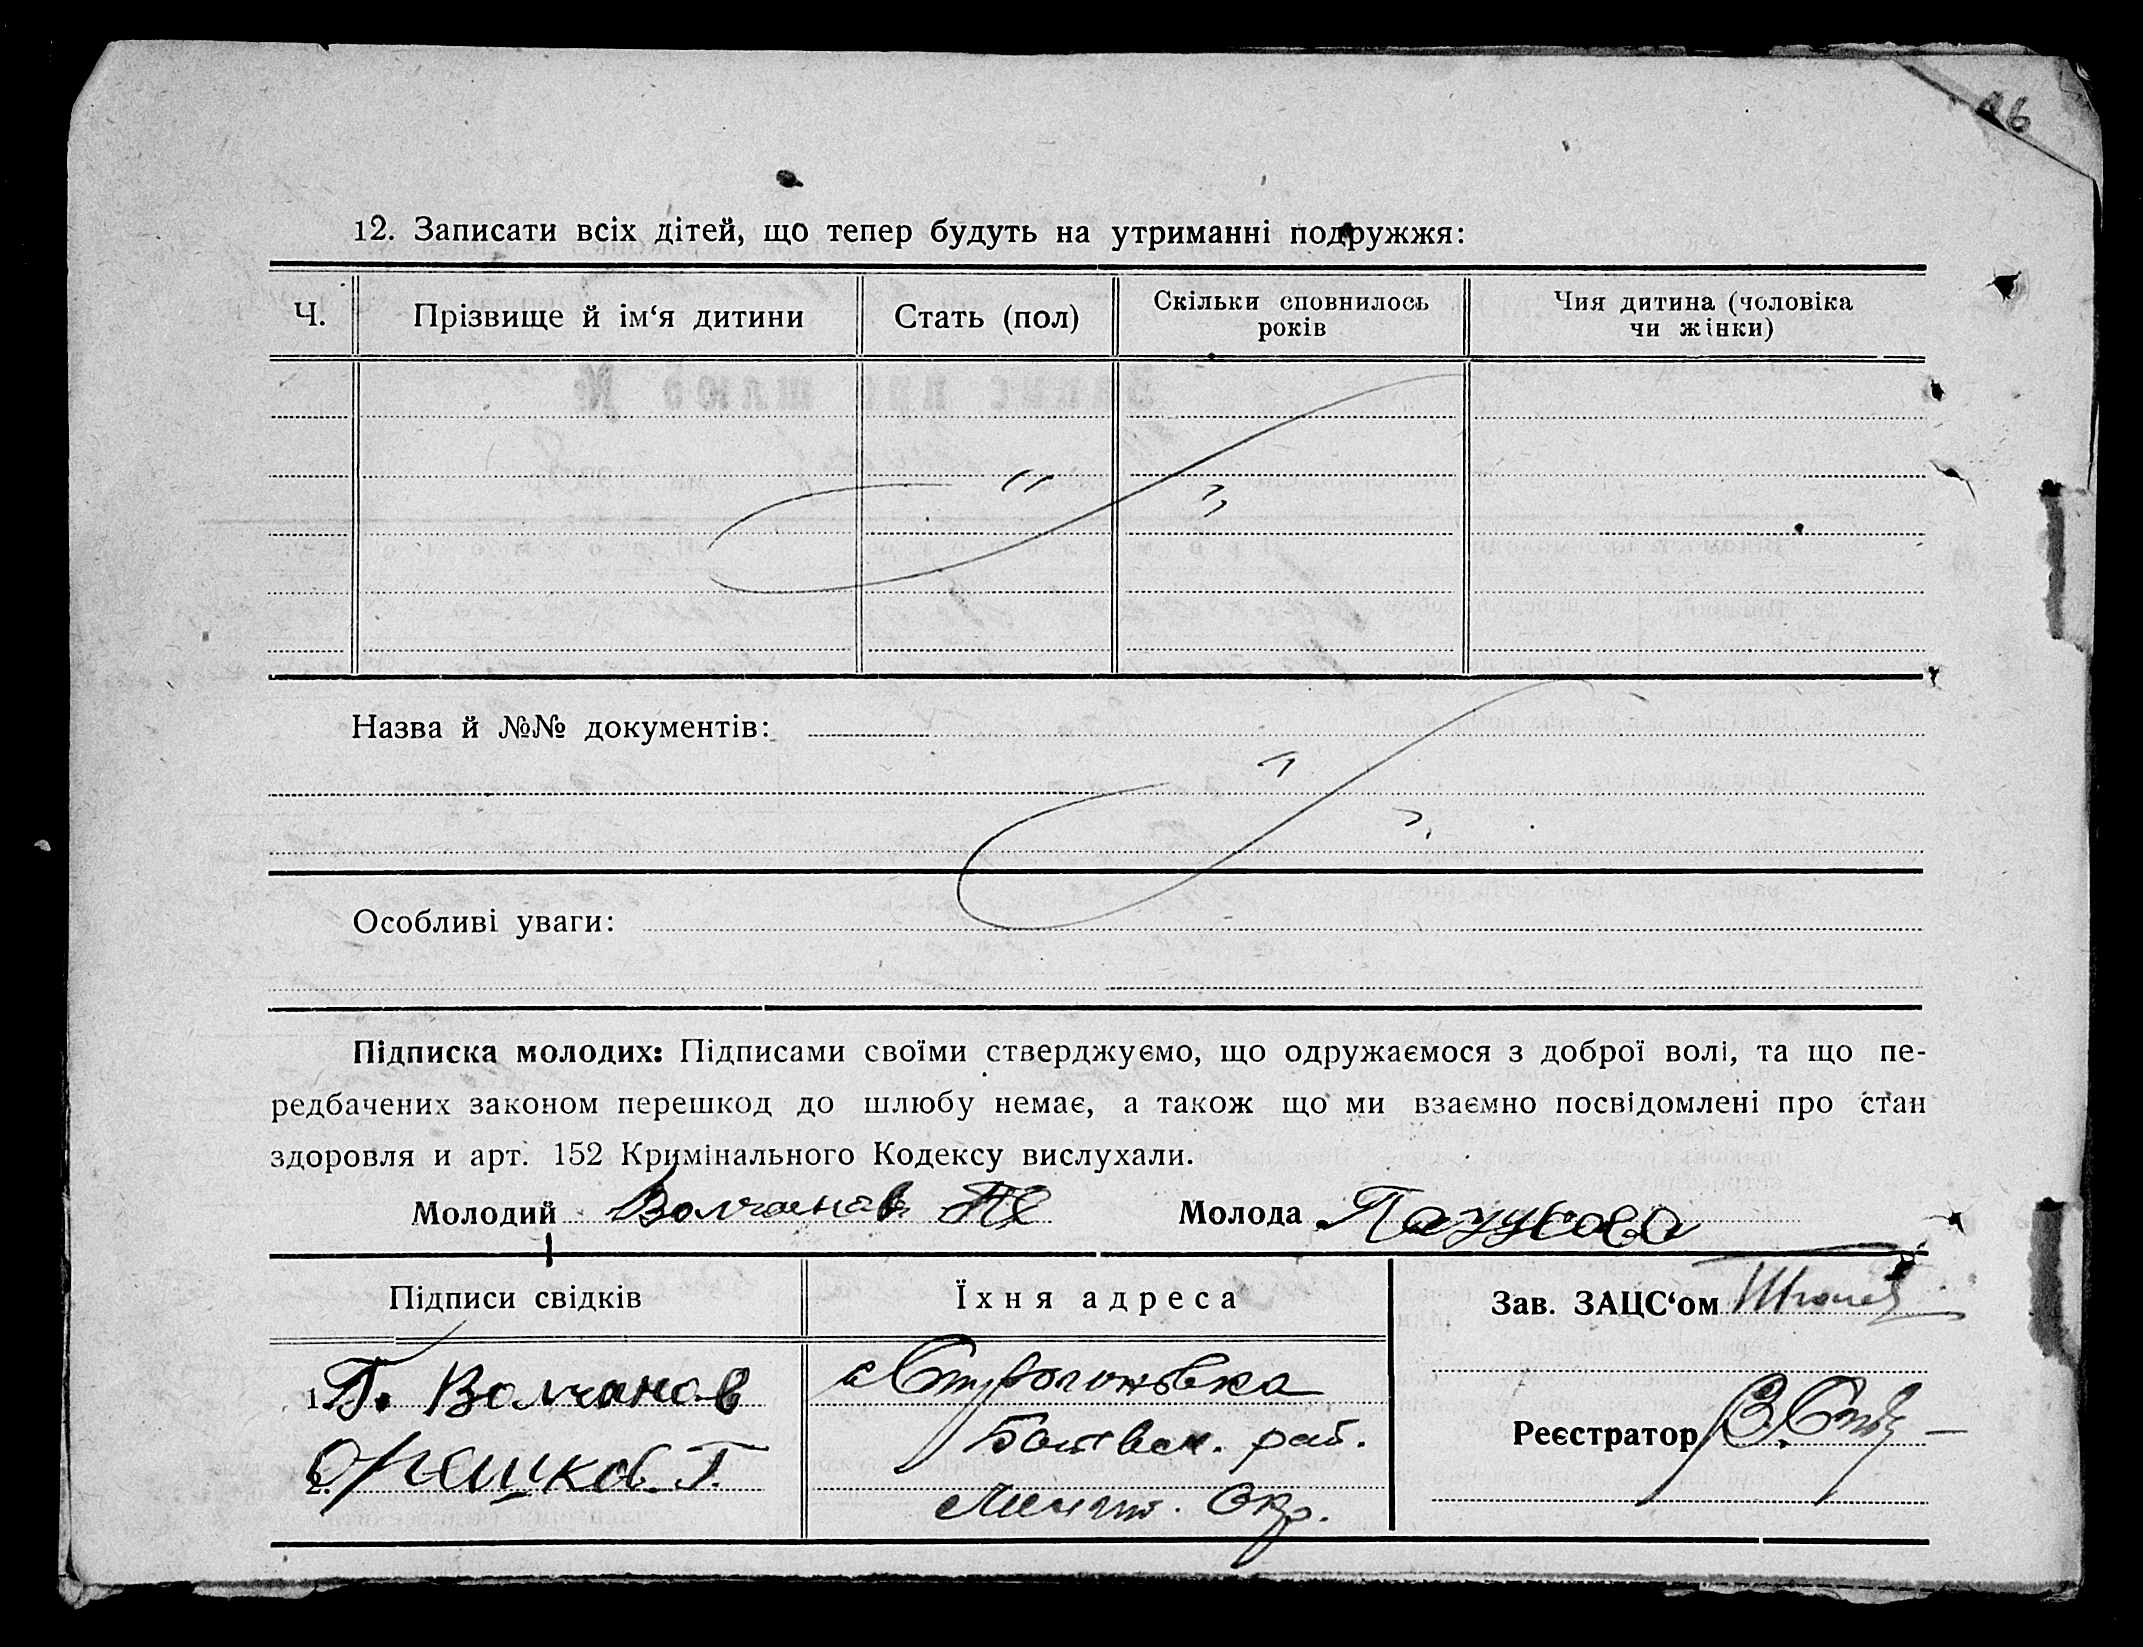 12. Записати всіх дітей, що тепер будуть на утриманні подружжя:
Ч.
Прізвище й ім‘я дитини
Стать (пол)
Скільки сповнилось
років
Чия дитина (чоловіка
чи жінки)
Назва й №№ документів:
Особливі уваги:
Підписка молодих: Підписами своїми стверджуємо, що одружаємося з доброї волі, та що пе-
редбачених законом перешкод до шлюбу немає, а також що ми взаємно посвідомлені про стан
здоровля и арт. 152 Кримінального Кодексу вислухали.
Молодий Волчанов
Молода
Підписи свідків
Їхня адреса
Зав. ЗАЦС‘ом
1. Волчанов
2.
Реєстратор
Окр.